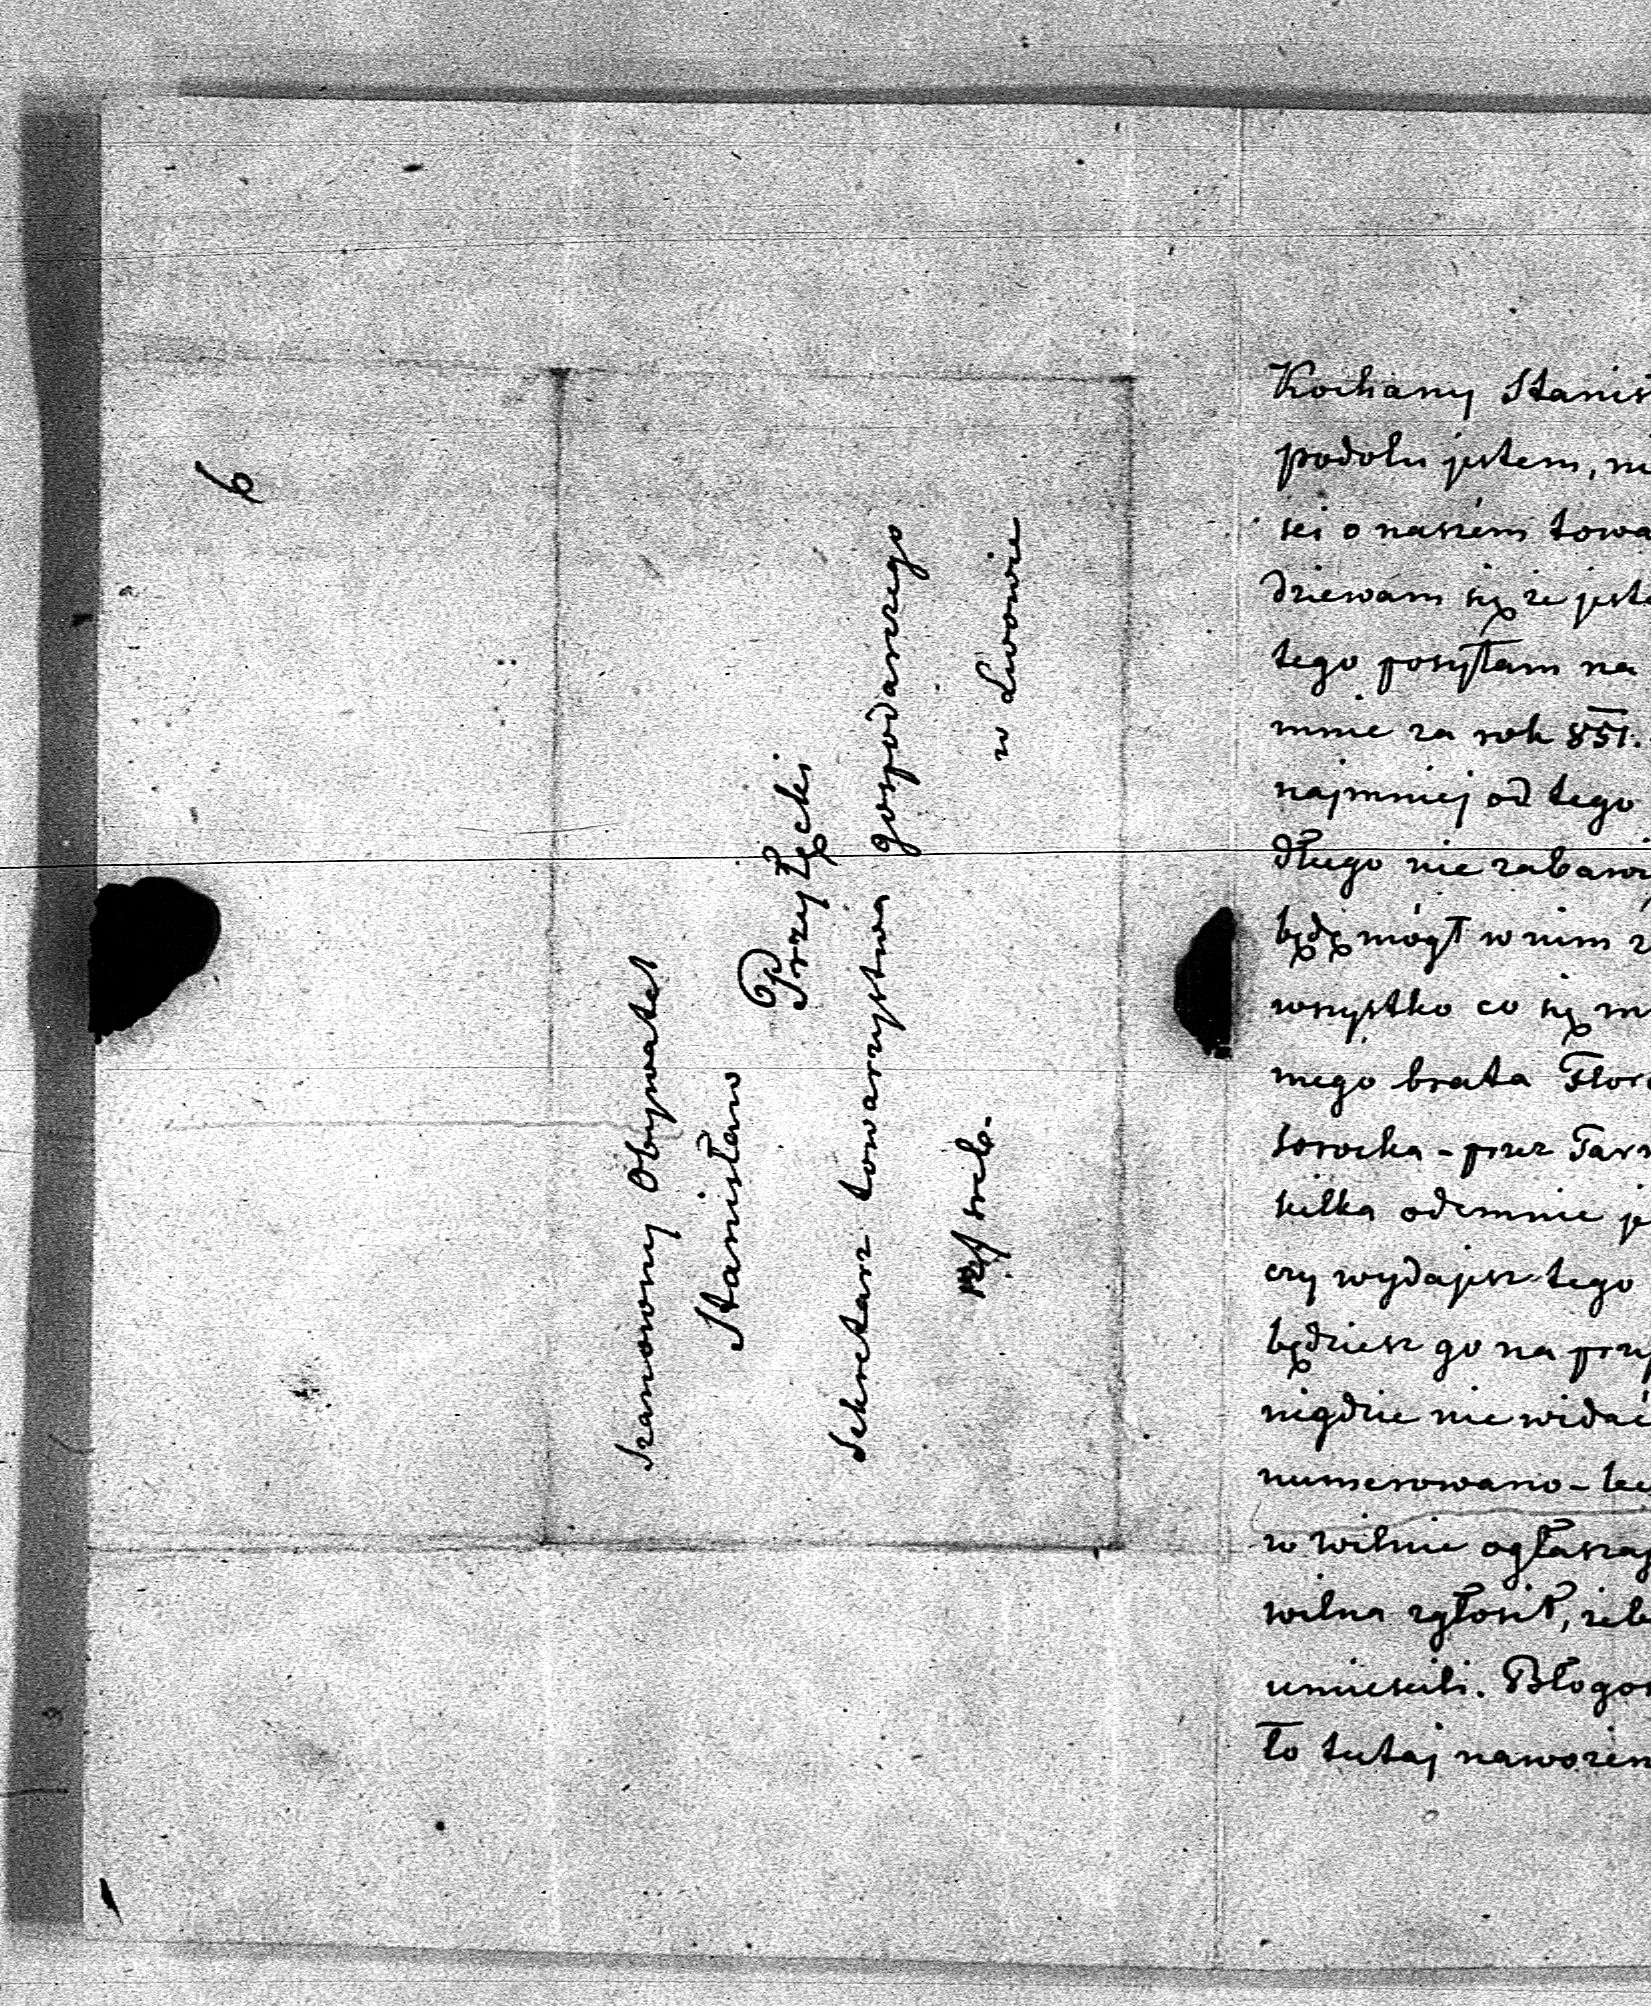 6
Szanowny Obywatel
Stanisław
Przyłęcki
Sekretarz towarzystwa gospodarzego
w Lwowie
Kochany Stanis
podolu jestem, ni
sci o naszém towa
dziewam się że jeste
tego posyłam na
mnie za rok 851.
najmniej od tego
długo nie zabawi
będę mógł w nim
wszystko co się m
mego brata Flor
Sorocka - przez Tarn
kilka odemnie je
czy wydajesz tego
będziesz go na przy
nigdzie nie widać
numerowano - lec
w wilnie ogłaszaj
wilna zgłosił, żeb
umiescili. Błogos
ło tutaj nawozem